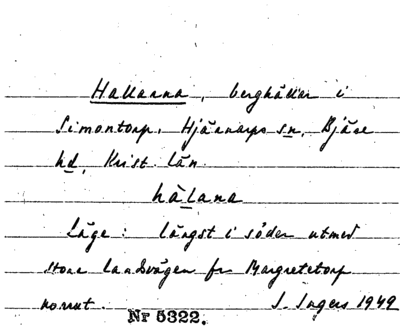 Hallarna, berghällar i
Simontorp, Hjärnarps sn, Bjäre
hd, Krist. län.
hàlana
Läge: längst i söder utmed
stora landsvägen fr Margretetorp
norrut. I. Ingers 1949
Nr 5322.